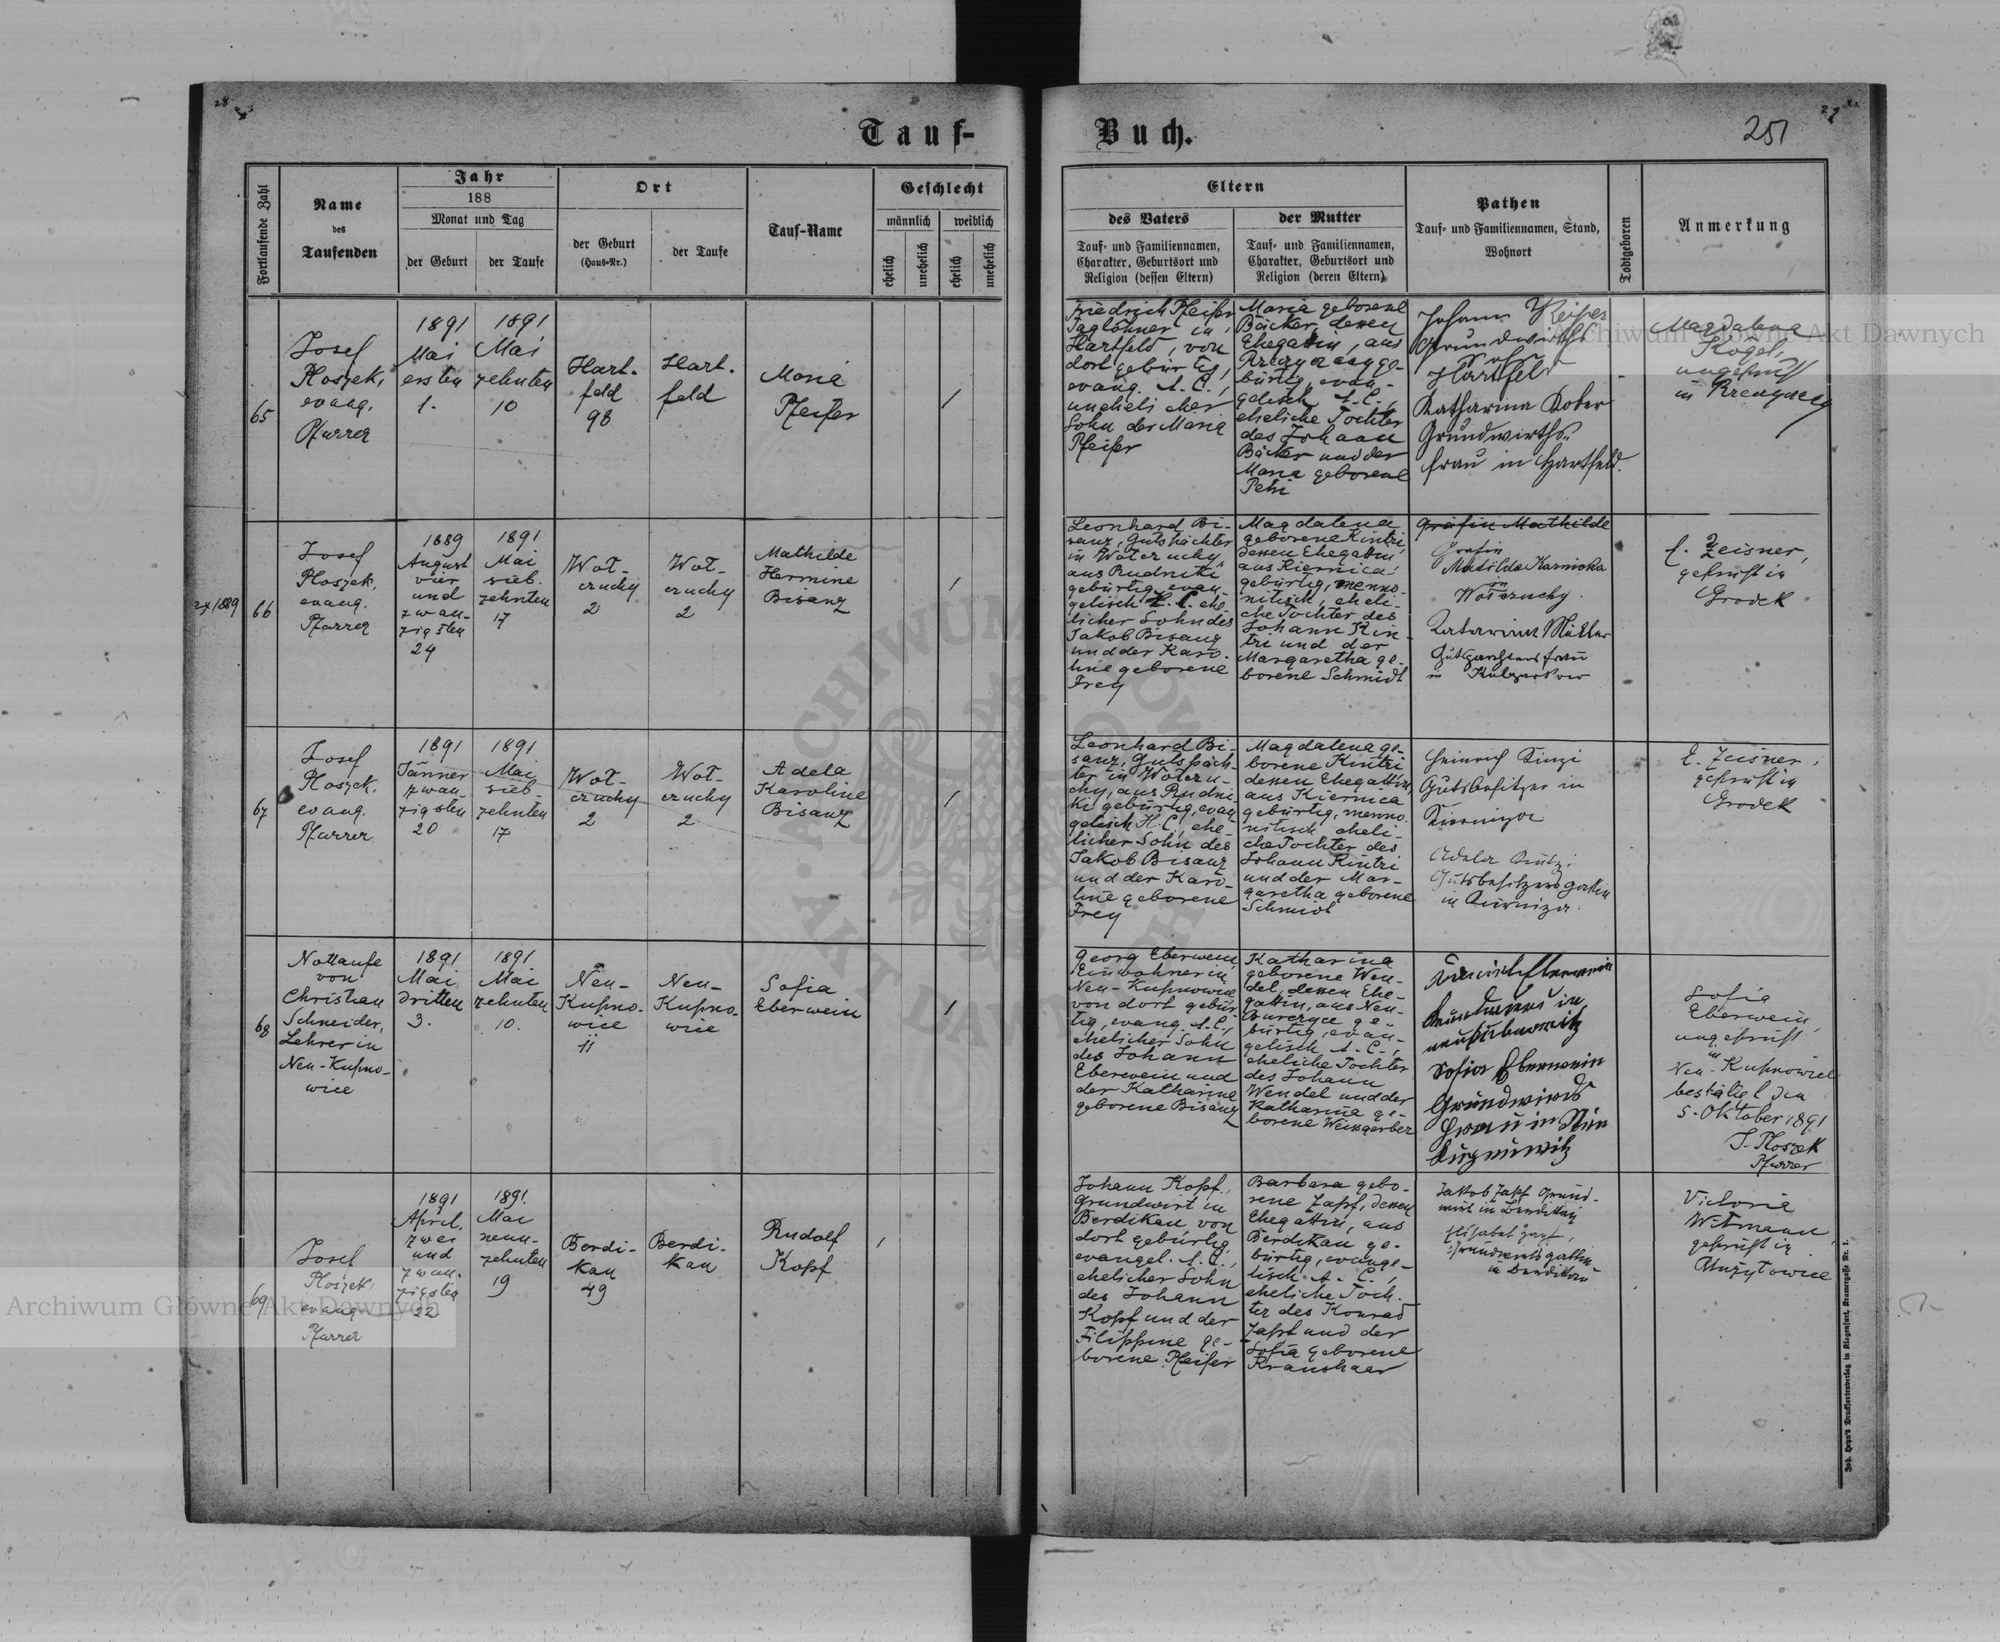 Tauf-
Buch.
251
Fortlaufende Zahl
Name
des
Taufenden
Jahr
188
Monat und Tag
der Geburt
der Taufe
Ort
der Geburt
(Haus-Nr.)
der Taufe
Tauf-Name
Geschlecht
männlich
weiblich
ehelich
unehelich
ehelich
unehelich
Eltern
des Vaters
Tauf- und Familiennamen,
Charakter, Geburtsort und
Religion (dessen Eltern)
der Mutter
Tauf- und Familiennamen,
Charakter, Geburtsort und
Religion (deren Eltern)
Pathen
Tauf- und Familiennamen, Stand,
Wohnort
Todtgeboren
Anmerkung
65
Josef
Ploszek,
evang.
Pfarrer
1891
Mai
ersten
1.
1891
Mai
zehnten
10
Hart-
feld
98
Hart-
feld
Maria
Pfeifer
Friedrich Pfeifer
Taglöhner in
Hartfeld, von
dort gebürtig,
evang. A. C.,
unehelicher
Sohn der Maria
Pfeifer
Maria geborene
Bäcker, dessen
Ehegattin, aus
ge-
bürtig, evan-
gelisch A. C.,
eheliche Tochter
des Johann
Bäcker und der
Maria geborene
Petri
Johann
Grundwirths
Sohn
Hartfeld
Katharina Kober
Grundwirths-
frau in Hartfeld.
Magdalena
Kogel,
ungeprüft
in
1889
66
Josef
Ploszek,
evang.
Pfarrer
1889
August
vier
und
zwan-
zigsten
24
1891
Mai
sieb-
zehnten
17
Wot-
czuchy
2
Wot-
czuchy
2
Mathilde
Hermine
Bisanz
Leonhard Bi-
sanz, Gutspächter
in Wotczuchy,
aus Rudniki
gebürtig, evan-
gelisch H. C., ehe-
licher Sohn des
Jakob Bisanz
und der Karo-
line geborene
Frey
Magdalena
geborene Kintzi,
dessen Ehegattin,
aus Kiernica
gebürtig, menno-
nitisch, eheli-
che Tochter des
Johann Kin-
tzi und der
Margaretha ge-
borene Schmidt
Gräfin Mathilde
Gräfin
Matilda Karnicka
in
Wotczuchy.
Katarina Müller
Gutspächtersfrau
in
L. Zeisner,
geprüft in
Grodek
67
Josef
Ploszek,
evang.
Pfarrer
1891
Jänner
zwan-
zigsten
20
1891
Mai
sieb-
zehnten
17
Wot-
czuchy
2
Wot-
czuchy
2
Adela
Karoline
Bisanz
Leonhard Bi-
sanz, Gutspäch-
ter in Wotczu-
chy, aus Rudni-
ki gebürtig, evan-
gelisch H. C., ehe-
licher Sohn des
Jakob Bisanz
und der Karo-
line geborene
Frey
Magdalena ge-
borene Kintzi
dessen Ehegattin,
aus Kiernica
gebürtig, menno-
nitisch, eheli-
che Tochter des
Johann Kintzi
und der Mar-
garetha geborene
Schmidt
Heinrich Kinzi
Gutsbesitzer in
Adela Kintzi
Gutsbesitzers gattin
in
L. Zeisner,
geprüft in
Grodek
68
Nottaufe
von
Christian
Schneider,
Lehrer in
Neu-Kupno-
wice
1891
Mai
dritten
3.
1891
Mai
zehnten
10.
Neu-
Kupno-
wice
11
Neu-
Kupno-
wice
Sofia
Eberwein
Georg Eberwein,
Einwohner in
Neu-Kupnowice
von dort gebür-
tig, evang. A. C.,
ehelicher Sohn
des Johann
Eberwein und
der Katharine
geborene Bisanz
Katharina
geborene Wen-
del, dessen Ehe-
gattin, aus Neu-
Burczyce ge-
bürtig, evan-
gelisch A. C.,
eheliche Tochter
des Johann
Wendel und der
Katharine ge-
borene Weissgerber
Sofia Eberwein
Grundwirds
Frau in
Sofia
Eberwein,
ungeprüft
in
Neu-Kupnowice
bestätigt den
5. Oktober 1891
J. Ploszek
Pfarrer
69
Josef
Ploszek,
evang.
Pfarrer
1891
April,
zwei
und
zwan-
zigsten
22
1891.
Mai
neun-
zehnten
19
Berdi-
kau
49
Berdi-
kau
Rudolf
Kopf
Johann Kopf,
Grundwirt in
Berdikau von
dort gebürtig,
evangel. A. C.,
ehelicher Sohn
des Johann
Kopf und der
Filippine ge-
borene Pfeifer
Barbara gebo-
rene Zapf, dessen
Ehegattin, aus
Berdikau ge-
bürtig, evange-
lisch A. C.,
eheliche Toch-
ter des Konrad
Zapf und der
Sofia geborene
Kraushaar
Jakob Zapf Grund-
wirt in Berdikau
Elisabet Zapf,
Grundwirts gattin
in Berdikau
Victoria
Witmann
geprüft in
Joh. Heyn's Drucksortenverlag in Klagenfurt, Kramergasse Nr. 1.
Archiwum Główne Akt Dawnych
Archiwum Główne Akt Dawnych